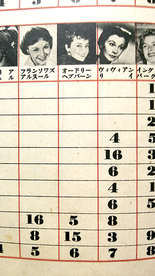 アル
フランソワズ
アルヌール
オードリー
ヘプバーン
ヴィヴィアン
リイ
イング
バーク
1
1
4 5
16 3
6 2
4 1
6 5
16 5 8
8 15 3 9
5 6 7 8